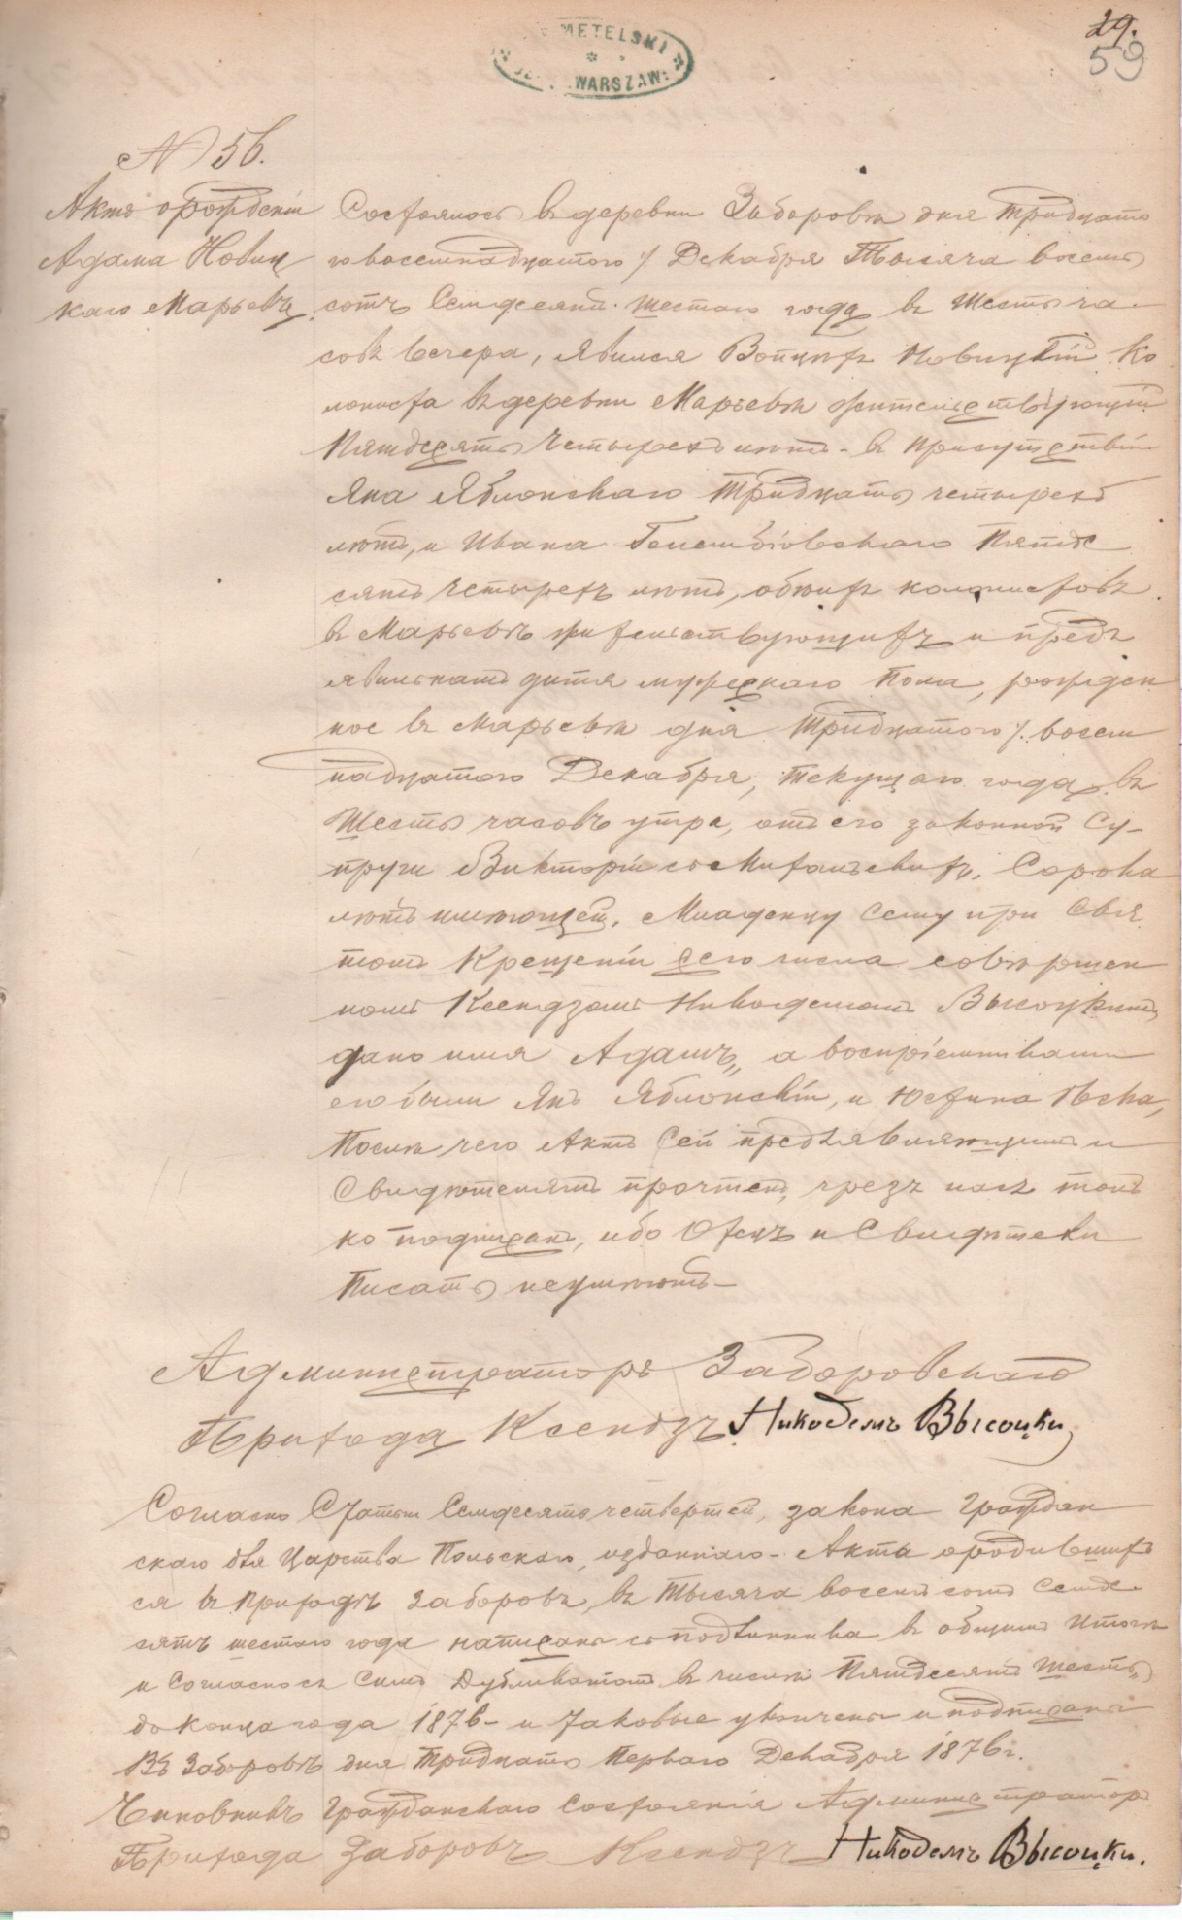 29.
59
METELSKI
WARSZAW
N 56.
Актъ о рожденіи
Адама Новиц
каго Марьевъ
Состоялось въ деревни Заборовѣ дня тридцато
го восемнадцатого /. Декабря Тысяча восемь
сотъ Семдесятъ шестаго года въ Шесть ча-
совъ вечера, явился Войцѣхъ Новицкій Ко
лониста въ деревни Марьевѣ жительствующій
Пятдесятъ Четырехъ лѣтъ - въ присутствіи
Яна Яблонскаго Тридцать четырехъ
лѣтъ, и Ивана Пятде
сятъ Четырехъ лѣтъ, обоихъ колонистовъ
въ Марьевѣ жительствующихъ и предъ
явилъ намъ дитя мужескаго Пола, рожден
ное въ Марьевѣ дня Тридцатого /. восем
надцатого Декабря, текущаго года въ
Шесть часовъ утра, отъ его законной Су-
пруги Викторіи съ Сорока
лѣтъ имѣющей. Младенцу сему при Свя
томъ Крещеніи сего числа совершен
номъ Ксендзомъ Никодемомъ Высоцкимъ
дано имя Адамъ„ а воспріемниками
его были Янъ Яблонскій, и Юстина
Послѣ чего Актъ Сей предъявляющимъ и
Свидѣтелямъ прочтенъ, чрезъ насъ толь
ко подписанъ, ибо Отецъ и Свидѣтели
Писать неумѣютъ -
Администраторъ Заборовскаго
Прихода Ксендзъ Никодемъ Высоцки
Согласно Статьи Семдесятъ четвертей, закона Граждан
скаго для Царства Польскаго, изданнаго - Акта о родившихъ
ся въ приходѣ Заборовъ, въ Тысяча восемь сотъ Семде
сятъ шестаго года написаны съ подлинника въ общимъ Итогѣ
и согласно съ симъ Дубликатомъ въ числѣ Пятдесятъ Шесть„
до конца года 1876 - и таковые укончены и подписаны
Въ Заборовѣ дня Тридцать Перваго Декабря 1876 г.
Чиновникъ Гражданскаго Состоянія Администраторъ
Прихода Заборовъ Ксендзъ Никодемъ Высоцки.